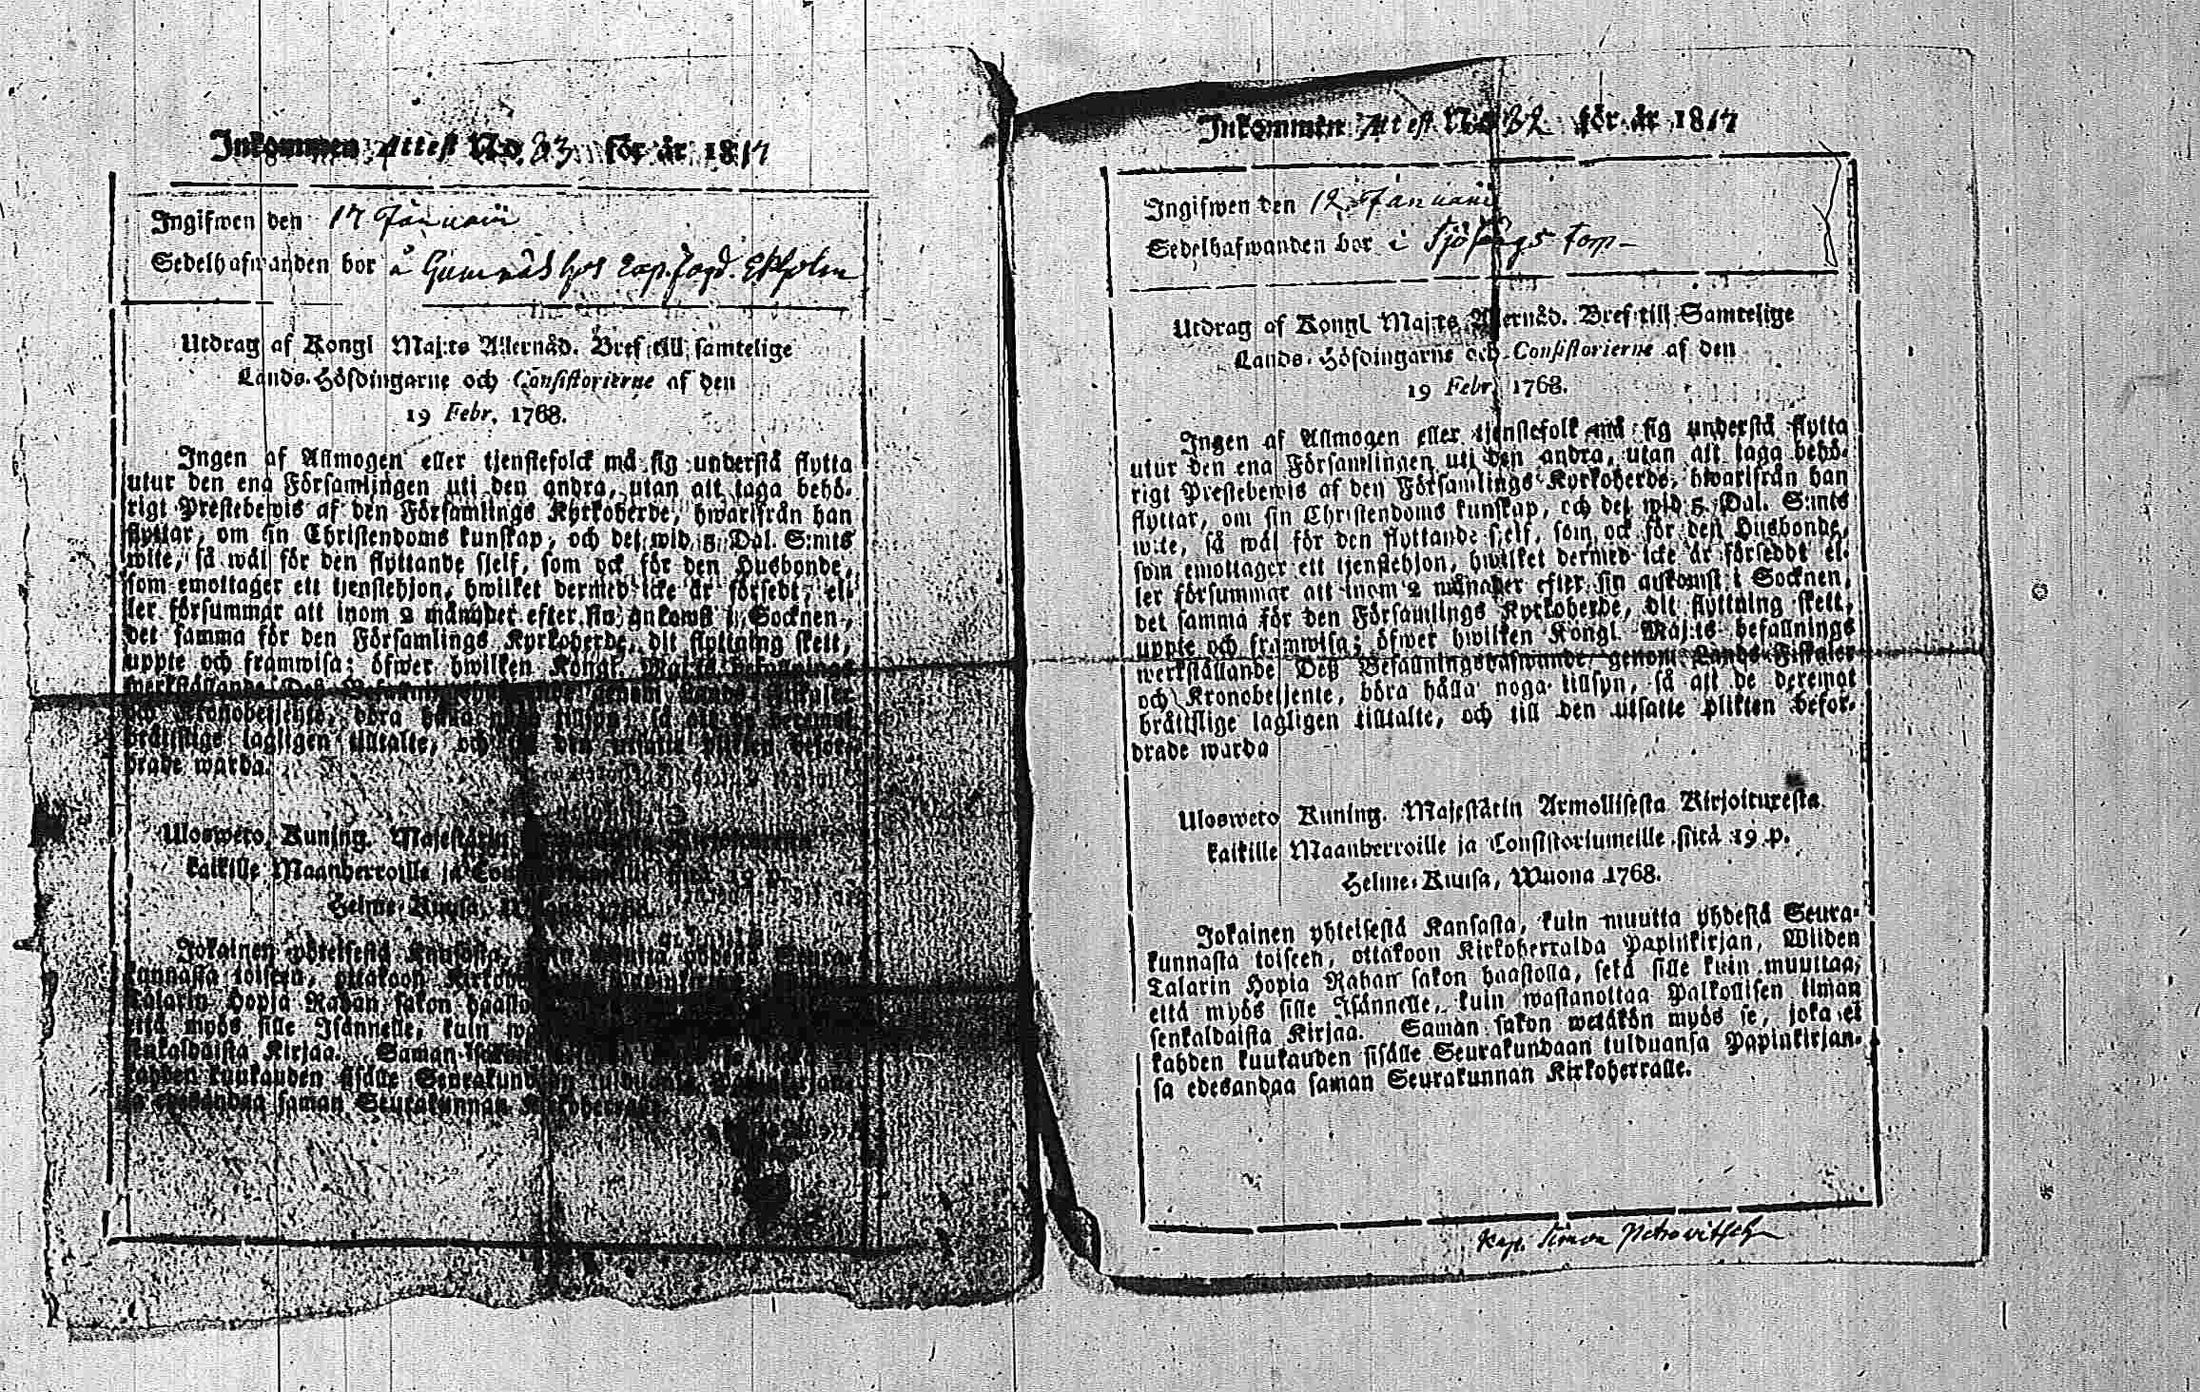 Inkommen Attest No. 83 för år 1817
Ingifwen den 17 Januarii
Sedelhafwanden bor å hos Exp. fogd. Ekholm
Utdrag af Kongl Maj:ts Allernåd. Bref till samtelige
Lands-Höfdingarne och Consistorierne af den
19 Febr. 1768.
Ingen af Allmogen eller tjenstefolck må sig understå flytta
utur den ena Församlingen uti den andra, utan att taga behö-
rigt Prestebewis af den Församlings Kyrkoherde, hwarifrån han
flyttar, om sin Christendoms kunskap, och det wid 5 Dal. S:mts
wite, så wäl för den flyttande sjelf, som ock för den Husbonde,
som emottager ett tjenstehjon, hwilket dermed icke är försedt, el-
ler försummar att inom 2 månader efter sin ankomst i Socknen,
det samma för den Församlings Kyrkoherde, dit flyttning skett,
uppte och framwisa; öfwer hwilken Kongl. Maj:ts befallnings
werkställande Deß genom Lands-Fiskaler
och Kronobetjente, böra hålla noga tillsyn, så att de deremot
brättslige lagligen tilltalte, och till den utsatte plikten befor-
drade warda.
Ulosweto Kuning. Majestätin Armollisesta Kirjoituxesta
kaikille Maanherroille ja Consistoriumeille siitä 19 p.
Helme-Kuusa, Wuona 1768.
Jokainen yhteisestä Kansasta, kuin muutta yhdestä Seura-
kunnasta toiseen, ottakoon Kirkoherralda Papinkirjan,
Talarin Hopia Rahan sakon haastolla,
että myös sille Isännelle, kuin
senkaldaista Kirjaa. Saman sakon
kahden kuukauden sisälle Seurakundaan tulduansa Papinkirjan-
sa edesandaa saman Seurakunnan Kirkoherralle.
Inkommen Attest No 82 för år 1817
Ingifwen den 12 Januarii
Sedelhafwanden bor i Sjöfängs torp
Utdrag af Kongl Maj:ts Allernåd. Bref till Samtelige
Lands-Höfdingarne och Consistorierne af den
19 Febr. 1768.
Ingen af Allmogen eller tjenstefolk må sig understå flytta
utur den ena Församlingen uti den andra, utan att taga behö-
rigt Prestebewis af den Församlings Kyrkoherde, hwarifrån han
flyttar, om sin Christendoms kunskap, och det wid 5 Dal. S:mts
wite, så wäl för den flyttande sjelf, som ock för den Husbonde,
som emottager ett tjenstehjon, hwilket dermed icke är försedt el-
ler försummar att inom 2 månader efter sin ankomst i Socknen,
det samma för den Församlings Kyrkoherde, dit flyttning skett,
uppte och framwisa; öfwer hwilken Kongl. Maj:ts befallnings
werkställande Deß Befallningshafwande genom Lands-Fiskaler
och Kronobetjente, böra hålla noga tillsyn, så att de deremot
bråttslige lagligen tilltalte, och till den utsatte plikten befor-
drade warda
Ulosweto Kuning. Majestätin Armollisesta Kirjoituxesta
kaikille Maanherroille ja Consistoriumeille siitä 19 p.
Helme-Kuusa, Wuona 1768.
Jokainen yhteisestä Kansasta, kuin muutta yhdestä Seura-
kunnasta toiseen, ottakoon Kirkoherralda Papinkirjan, Wiiden
Talarin Hopia Rahan sakon haastolla, sekä sille kuin muuttaa,
että myös sille Isännelle, kuin wastanottaa Palkollisen ilman
senkaldaista Kirjaa. Saman sakon wetäkön myös se, joka ei
kahden kuukauden sisälle Seurakundaan tulduansa Papinkirjan-
sa edesandaa saman Seurakunnan Kirkoherralle.
Kap. Simon Petrowitsch